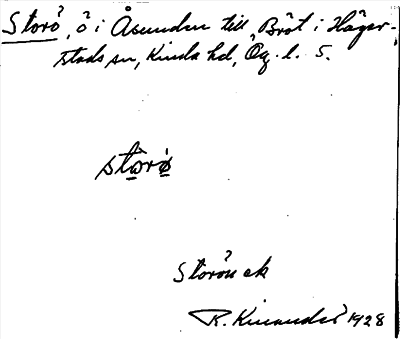 Storö, ö i Åsunden till Bröt i Häger-
stads sn, Kinda hd, Ög. l. 5.
storö
Storön ek
R. Kinander 1928